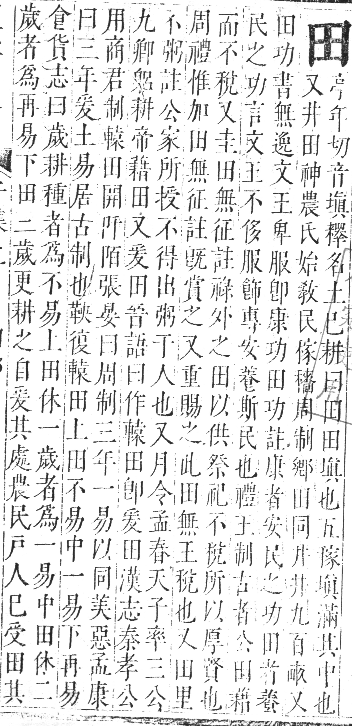 田亭年切音塡釋名土巳耕曰田田塡也五稼塡滿其中也
又井田神農氏始敎民稼穡周制鄉田同井井九百畝又
田功書無逸文王卑服卽康功田功註康者安民之功田者養
民之功言文王不侈服飾專安養斯民也禮王制古者公田藉
而不稅又圭田無征註祿外之田以供祭祀不稅所以厚賢也
周禮惟加田無征註旣賞之又重賜之此田無王稅也又田里
不粥註公家所授不得出粥于人也又月令孟春天子率三公
九卿躬耕帝藉田又爰田晉語曰作轅田卽爰田漢志秦孝公
用商君制轅田開阡陌張晏曰周制三年一易以同美惡孟康
曰三年爰土易居古制也鞅復轅田上田不易中一易下再易
食貨志曰歲耕種者爲不易上田休一歲者爲一易中田休二
歲者爲再易下田二歲更耕之自爰其處農民戶人巳受田其